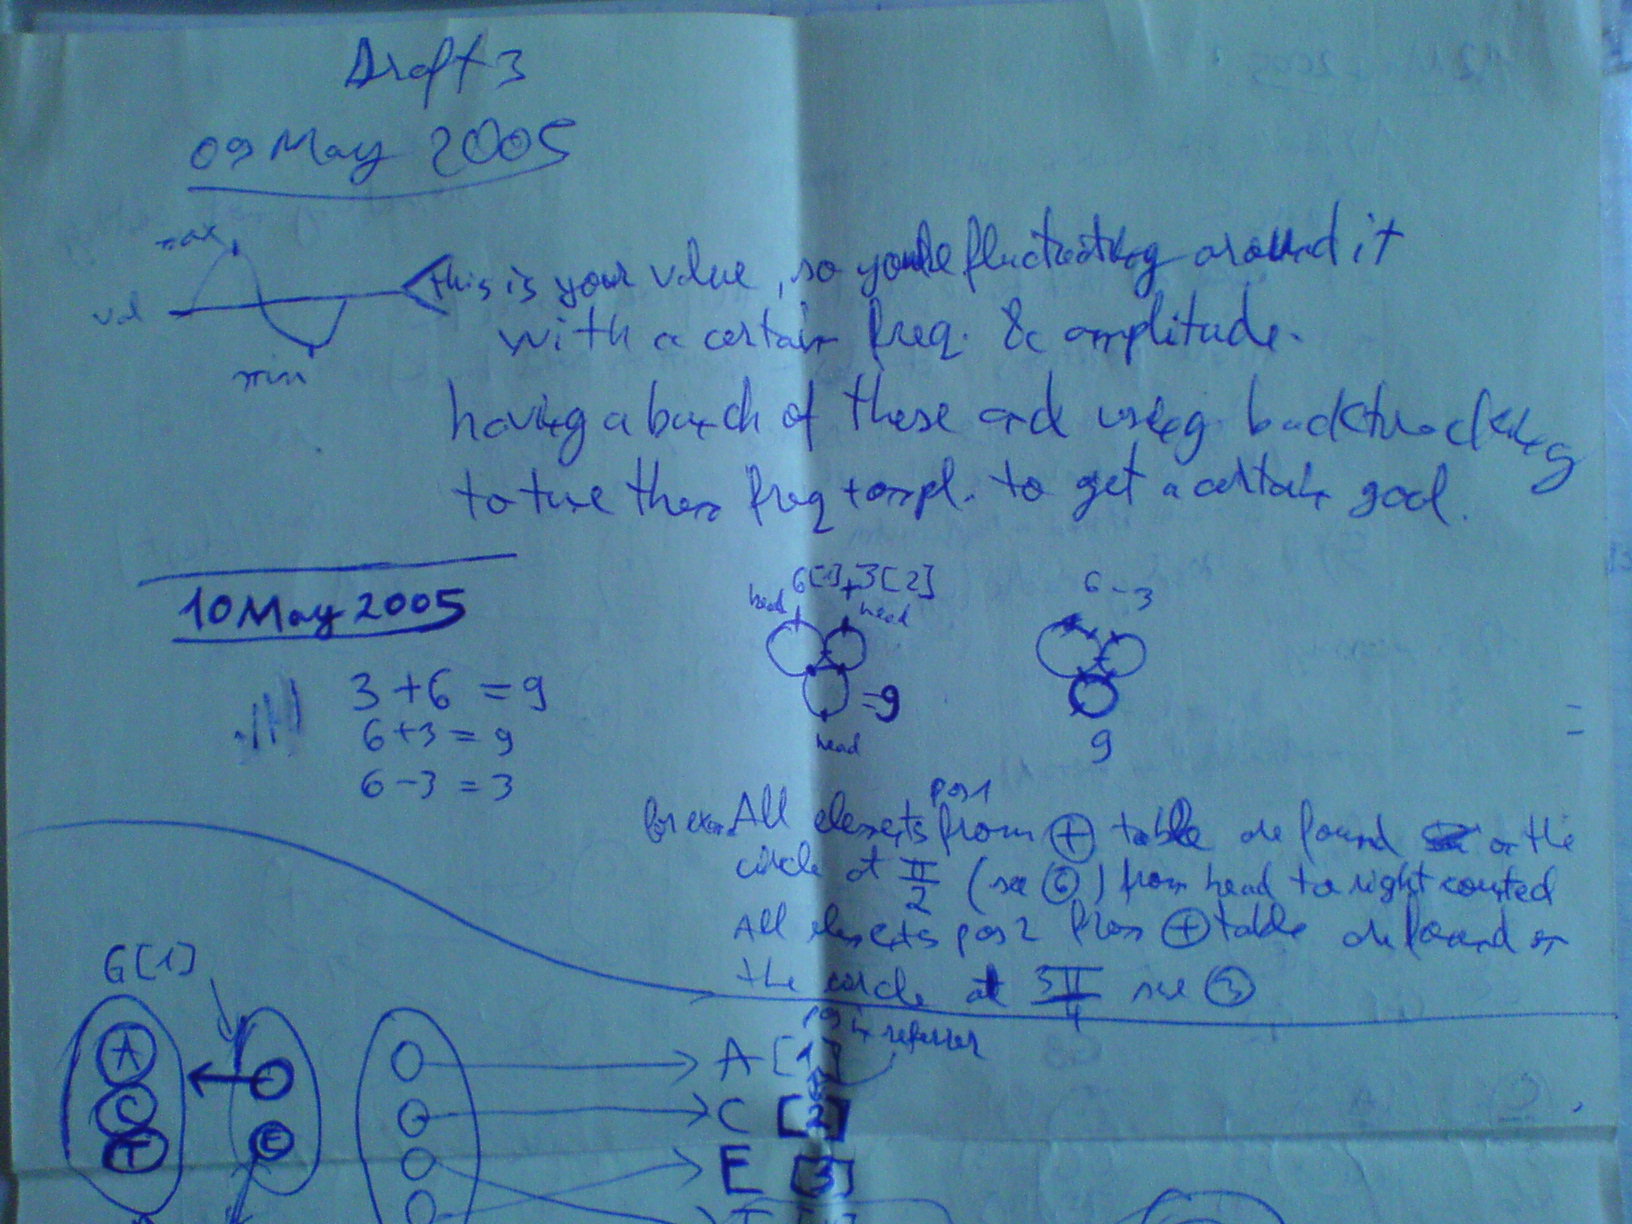 Draft 3
09 May 2005
max
val
min
this is your value, so you're fluctuating around it
with a certain freq. & amplitude.
having a bunch of these and using backtracking
to tune them freq + ampl. to get a certain goal.
10 May 2005
3 + 6 = 9
6 + 3 = 9
6 - 3 = 3
6[1]+3[2]
head
head
=9
head
6-3
9
pos1
for exm. All elements from + table are found on the
circle at π/2 (see 6) from head to right counted
All elements pos 2 from + table are found on
the circle at 3π/4 see 3
G[1]
pos in referrer
A
C
T
E
A [1]
C [2]
E [3]